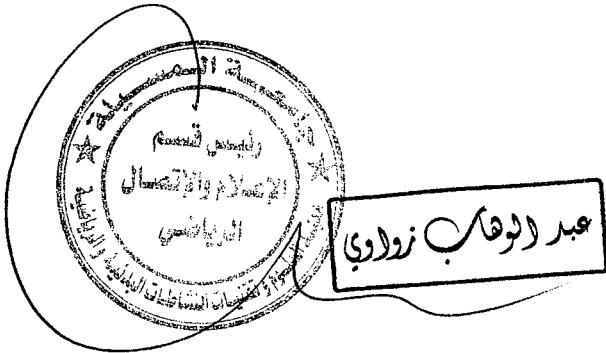 جامعة المسيلة
رئيس قسم
الإعلام والإتصال
الرياضي
معهد علوم و تقنيات النشاطات البدنية و الرياضية
عبد الوهاب زواوي